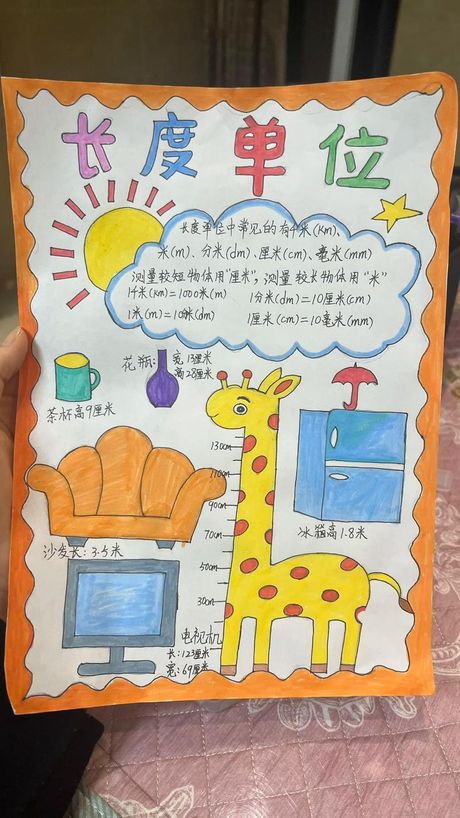 长度单位
长度单位中常见的有千米(km)、
米(m)、分米(dm)、厘米(cm)、毫米(mm)
测量较短物体用"厘米",测量较长物体用"米"
1千米(km)=1000米(m) 1分米(dm)=10厘米(cm)
1米(m)=10米(dm) 1厘米(cm)=10毫米(mm)
花瓶: 宽13厘米
高28厘米
茶杯高9厘米
130cm
110cm
90cm
70cm
50cm
30cm
冰箱高1.8米
沙发长:3.5米
电视机
长:123厘米
宽:69厘米